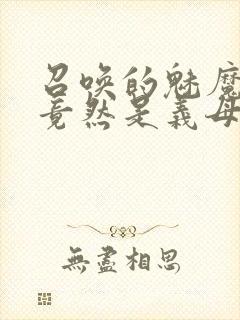 召唤的魅魔
竟然是义母
無盡相思